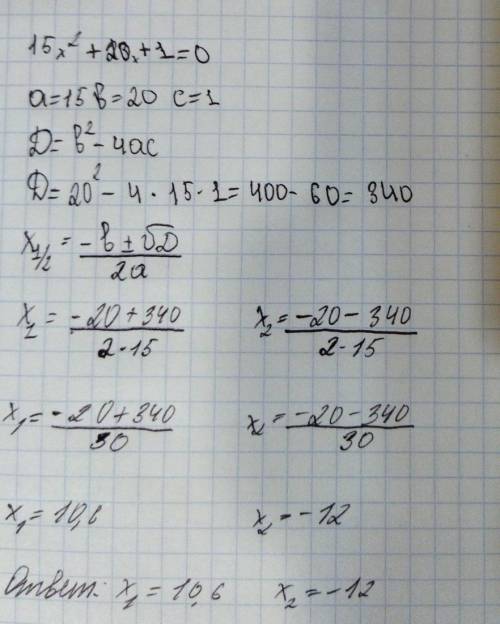 15x² + 20x + 1 = 0
a = 15 в = 20 c = 1
Д = в² - 4ac
Д = 20² - 4 · 15 · 1 = 400 - 60 = 340
x1/2 = (-в ± √Д)/(2a)
x1 = (-20 + 340)/(2·15) x2 = (-20 - 340)/(2·15)
x1 = (-20 + 340)/30 x2 = (-20 - 340)/30
x1 = 10,6 x2 = -12
Ответ: x1 = 10,6 x2 = -12